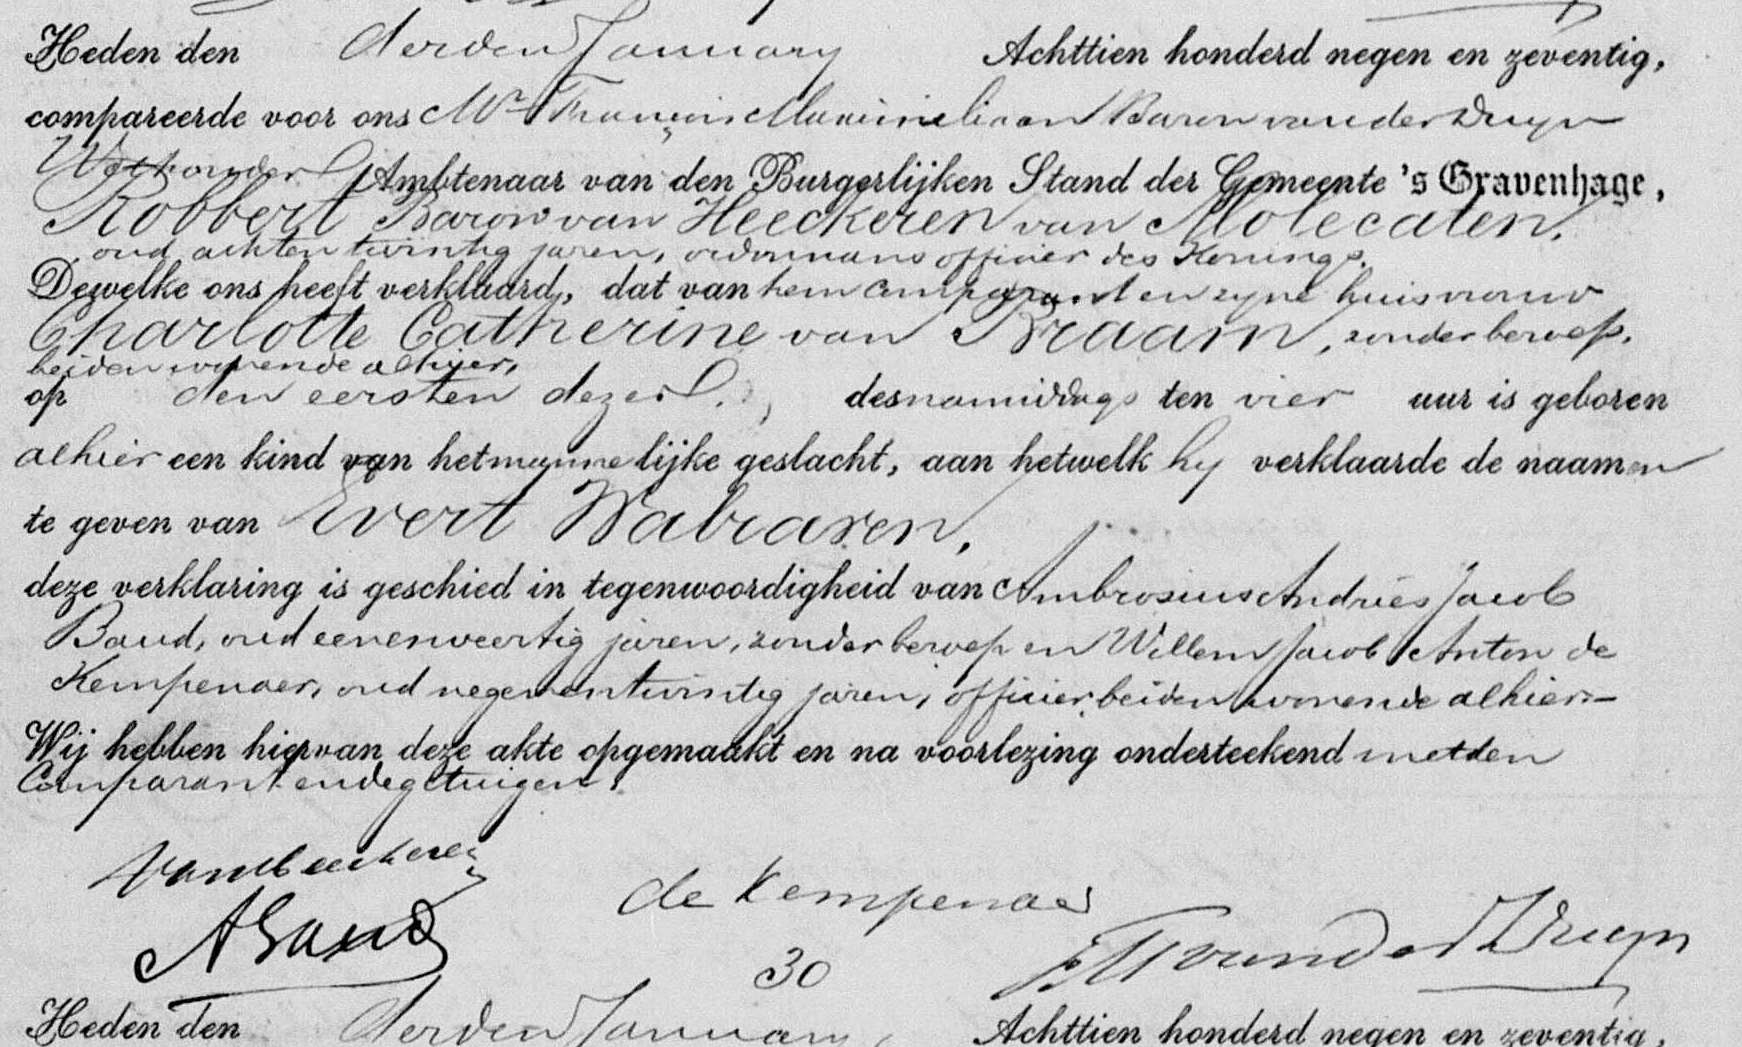 Heden den derden January Achttien honderd negen en zeventig,
compareerde voor ons Mr François Maximiliaan Baron van der Duyn
Wethouder Ambtenaar van den Burgerlijken Stand der Gemeente 's Gravenhage,
Robbert Baron van Heeckeren van Molecaten,
oud achten twintig jaren, ordonnans officier des Konings,
Dewelke ons heeft verklaard, dat van hem comparant en zyne huisvrouw
Charlotte Catherine van Braam, zonder beroep,
beiden wonende alhier,
op den eersten dezer, des namiddags ten vier uur is geboren
alhier een kind van het mannelijke geslacht, aan hetwelk hy verklaarde de naamen
te geven van Evert Walraven,
deze verklaring is geschied in tegenwoordigheid van Ambrosius Andries Jacob
Baud, oud eenenveertig jaren, zonder beroep en Willem Jacob Anton de
Kempenaer, oud negenentwintig jaren, officier, beiden wonende alhier.—
Wij hebben hiervan deze akte opgemaakt en na voorlezing onderteekend met den
Comparant en de getuigen.
van Heeckeren
de Kempenaer
ABaud
FM van der Duyn
30
Heden den derden January, Achttien honderd negen en zeventig,